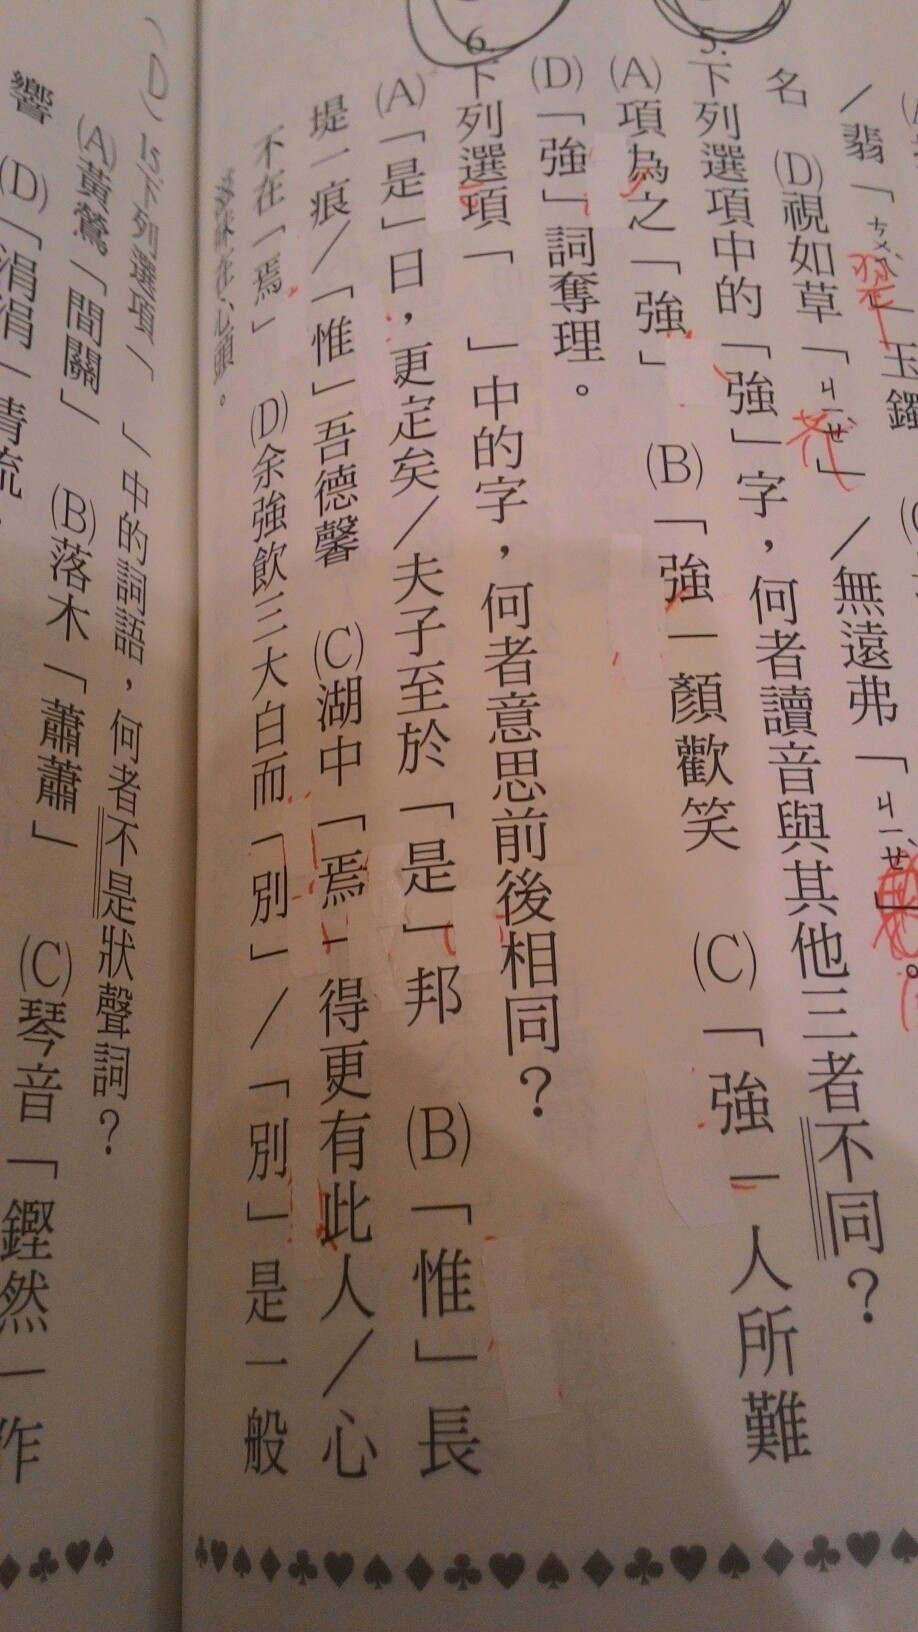 ／翡「ㄘㄨㄟˋ」玉鐲
名　(D)視如草「ㄐㄧㄝˋ」／無遠弗「ㄐㄧㄝˋ」。
5.下列選項中的「強」字，何者讀音與其他三者不同？
(A)項為之「強」　(B)「強」顏歡笑　(C)「強」人所難
(D)「強」詞奪理。
6.下列選項「　」中的字，何者意思前後相同？
(A)「是」日，更定矣／夫子至於「是」邦　(B)「惟」長
堤一痕／「惟」吾德馨　(C)湖中「焉」得更有此人／心
不在「焉」　(D)余強飲三大白而「別」／「別」是一般
在心頭。
(D) 15.下列選項「　」中的詞語，何者不是狀聲詞？
(A)黃鶯「間關」　(B)落木「蕭蕭」　(C)琴音「鏗然」作
響　(D)「涓涓」清流。